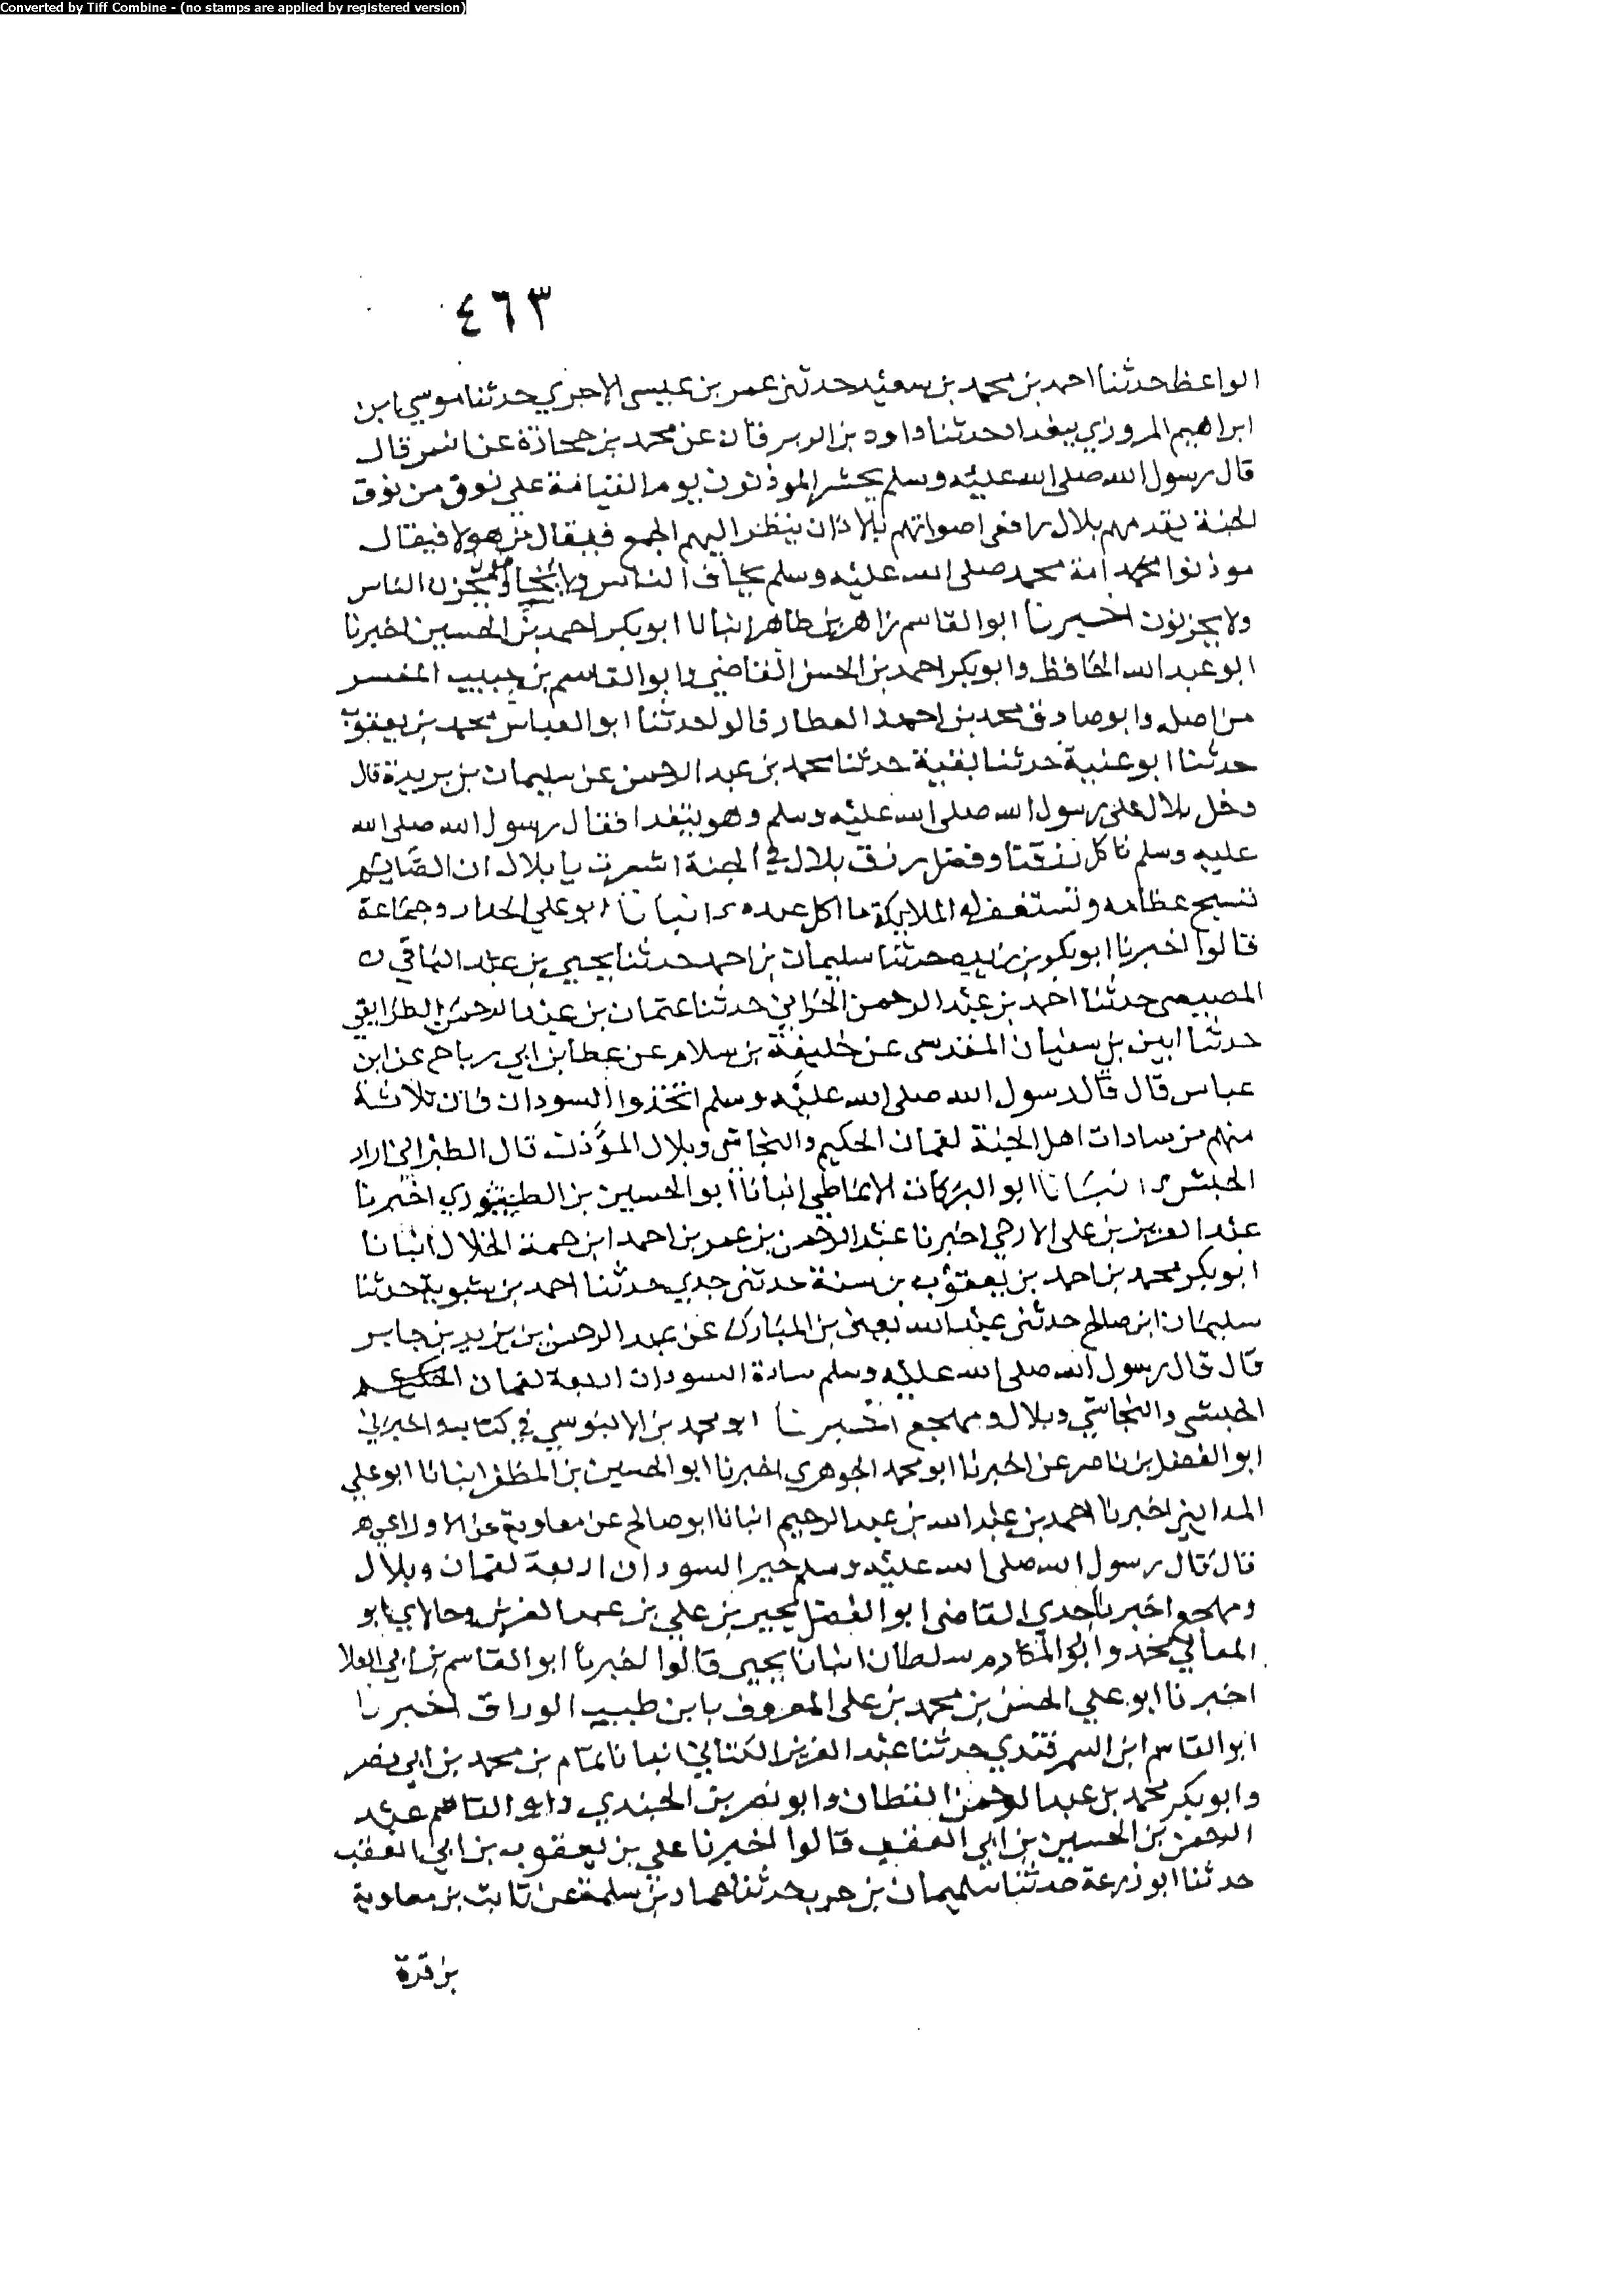 Converted by Tiff Combine - (no stamps are applied by registered version)
٤٦٣
الواعظ حدثنا احمد بن محمد بن سعيد حدثني عمر بن عيسى الاجري حدثنا موسي ابن
ابراهيم المروزي ببغداد حدثنا داود بن الزبرقان عن محمد بن جحادة عن انس قال
قال رسول الله صلى الله عليه وسلم يحشر الموذنون يوم القيامة علي نوق من نوق
الجنة يقدمهم بلال رافعى اصواتهم بالاذان ينظر اليهم الجمع فيقال من هولا فيقال
موذنوا امة محمد صلى الله عليه وسلم يخاف الناس ولا يخافون ويحزن الناس
ولا يحزنون اخبرنا ابو القاسم زاهر بن طاهر انبانا ابو بكر احمد بن الحسين اخبرنا
ابو عبد الله الحافظ وابو بكر احمد بن الحسن القاضي وابو القاسم بن حبيب المفسر
من اصله وابو صادق محمد بن احمد العطار قالوا حدثنا ابو العباس محمد بن يعقوب
حدثنا ابو عتبة حدثنا بقية حدثنا محمد بن عبد الرحمن عن سليمان بن بريدة قال
دخل بلال على رسول الله صلى الله عليه وسلم وهو يتغدا فقال رسول الله صلى الله
عليه وسلم ناكل رزقنا وفضل رزق بلال في الجنة اشعرت يا بلال ان الصايم
تسبح عظامه وتستغفر له الملايكة ما اكل عنده انبانا ابو علي الحداد وجماعة
قالوا اخبرنا ابو بكر بن ريذه حدثنا سليمان بن احمد حدثنا يحيى بن عبد الباقي
المصيصى حدثنا احمد بن عبد الرحمن الحراني حدثنا عثمان بن عبد الرحمن الطرايفي
حدثنا ابين بن سفيان المقدسى عن خليفة بن سلام عن عطا بن ابي رباح عن ابن
عباس قال قال رسول الله صلى الله عليه وسلم اتخذوا السودان فان ثلاثة
منهم من سادات اهل الجنة لقمان الحكيم والنجاشى وبلال المؤذن قال الطبراني اراد
الحبش انبانا ابو البركات الانماطي انبانا ابو الحسين بن الطيوري اخبرنا
عبد العزيز بن على الازجي اخبرنا عبد الرحمن بن عمر بن احمد ابن حمة الخلال انبانا
ابو بكر محمد بن احمد بن يعقوب بن شيبة حدثنى جدي حدثنا احمد بن شبوية حدثنا
سليمان ابن صالح حدثنى عبد الله يعنى بن المبارك عن عبد الرحمن بن يزيد بن جابر
قال قال رسول الله صلى الله عليه وسلم سادة السودان اربعة لقمان
الحبشى والنجاشي وبلال ومهجع اخبرنا ابو محمد بن الابنوسي في كتابه واخبرني
ابو الفضل بن ناصر عن اخبرنا ابو محمد الجوهري اخبرنا ابو الحسين بن المظفر انبانا ابو علي
المدايني اخبرنا احمد بن عبد الله بن عبد الرحيم انبانا ابو صالح عن معاوية عن الاوزاعي
قال قال رسول الله صلى الله عليه وسلم خير السودان اربعة لقمان وبلال
ومهجع اخبرنا جدي القاضى ابو الفضل يحيى بن علي بن عبد العزيز وخالاي ابو
المعالي محمد وابو المكارم سلطان ابنا يحيى قالوا اخبرنا ابو القاسم بن ابي العلا
اخبرنا ابو علي الحسن بن محمد بن على المعروف بابن طبيب الوراق اخبرنا
ابو القاسم ابن السمرقندي حدثنا عبد العزيز الكتاني انبانا تمام بن محمد بن ابي نصر
وابو بكر محمد بن عبد الرحمن القطان وابو نصر بن الجندي وابو القاسم عبد
الرحمن بن الحسين بن ابي العقب قالوا اخبرنا علي بن يعقوب بن ابي العقب
حدثنا ابو زرعة حدثنا سليمان بن حرب حدثنا حماد بن سلمة عن ثابت بن معاوية
بن قرة